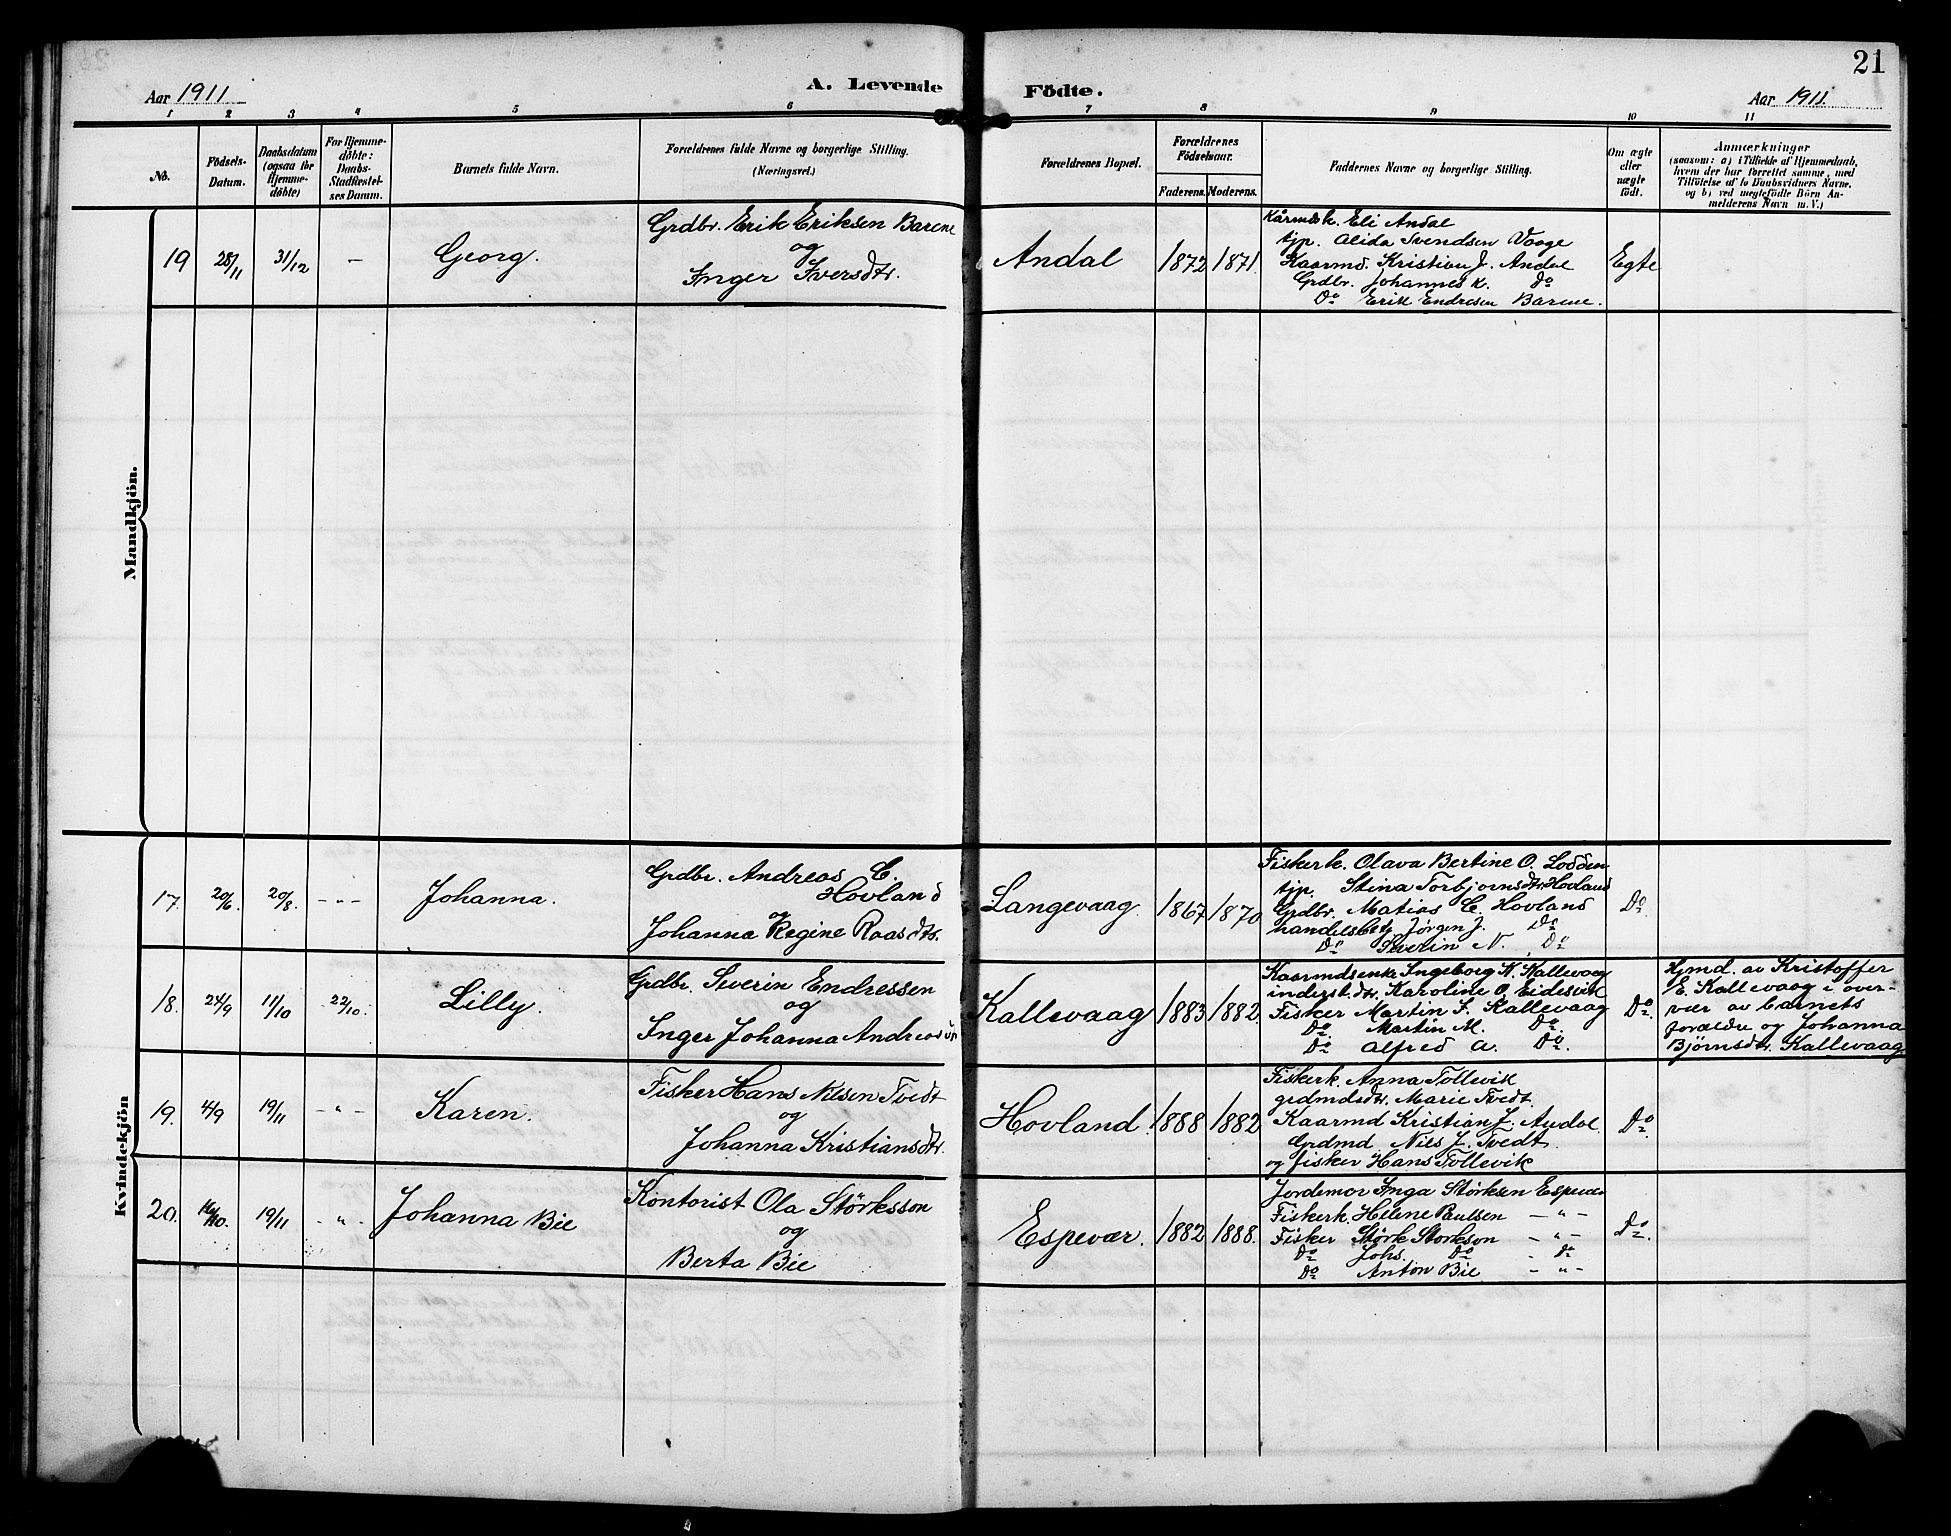 21
Aar 1911 A. Levende Födte. Aar 1911.
1 2 3 4 5 6 7 8 9 10 11
No.
Födsels-Datum.
Daabsdatum (ogsaa for Hjemme-döbte)
For Hjemme-döbte: Daabs-Stadfæstel-ses Datum.
Barnets fulde Navn.
Forældrenes fulde Navne og borgerlige Stilling.
(Næringsvei.)
Forældrenes Bopæl.
Forældrenes Födselsaar.
Faderens. Moderens.
Faddernes Navne og borgerlige Stilling.
Om ægte eller uægte födt.
Anmærkninger
(saasom: a) i Tilfælde af Hjemmedaab,
hvem der har forrettet samme, med
Tilföielse af to Daabsvidners Navne,
og b) ved uegtefödte Börn An-
melderens Navn m. V.)
Mandkjön.
19 28/11 31/12 — Georg.
Grdbr. Erik Eriksen Barene
og
Inger Iversdtr.
Andal 1872 1871.
Kårmdsk. Eli Andal
tjp. Alida Svendsen Vaage
Kaarmd. Kristian J. Andal
Grdbr. Johannes K. Do
Do Erik Endresen Barene.
Egte
Kvindekjön
17. 20/6. 20/8. - " - Johanna.
Grdbr. Andreas C.
Hovland
og
Johanna Regine Roasdtr.
Langevaag. 1867 1870
Fiskerk. Olava Bertine O. Lodden
tjp. Stina Torbjornsdtr Hovland
Grdbr. Matias C. Hovland
handelsbetj Jørgen J. Do
Do Severin N. Do
Do.
18. 24/9 11/10 22/10. Lilly.
Grdbr. Severin Endressen
og
Inger Johanna Andreasdtr
Kallevaag 1883 1882.
Kaarmdsenke Ingeborg N. Kallevaag
inderstdtr. Karoline O. Eidesvik
Fisker Martin S. Kallevaag
Do Martin M. Do.
Do Alfred A. Do.
Do.
Hjmd. av Kristoffer
E. Kallevaag i over-
vær av barnets
forældre og Johanna
Bjørnsdtr. Kallevaag
19. 4/9 19/11 - " - Karen.
Fisker Hans Nilsen Tvedt
og
Johanna Kristiansdtr.
Hovland. 1888 1882
Fiskerk. Anna Tollevik
grdmdsdtr. Marie Tvedt.
Kaarmd Kristian J. Andal.
Grdmd Nils J. Tvedt.
og fisker Hans Tollevik
Do.
20. 16/10. 19/11 - " - Johanna Bie
Kontorist Ola Størksson
og
Berta Bie
Espevær. 1882 1888.
Jordemor Inga Størksen Espevær
Fiskerk. Helene Paulsen - " -
Fisker Størk Storkson - " -
Do Johs. Do - Do
Do Anton Bie - " -
Do.